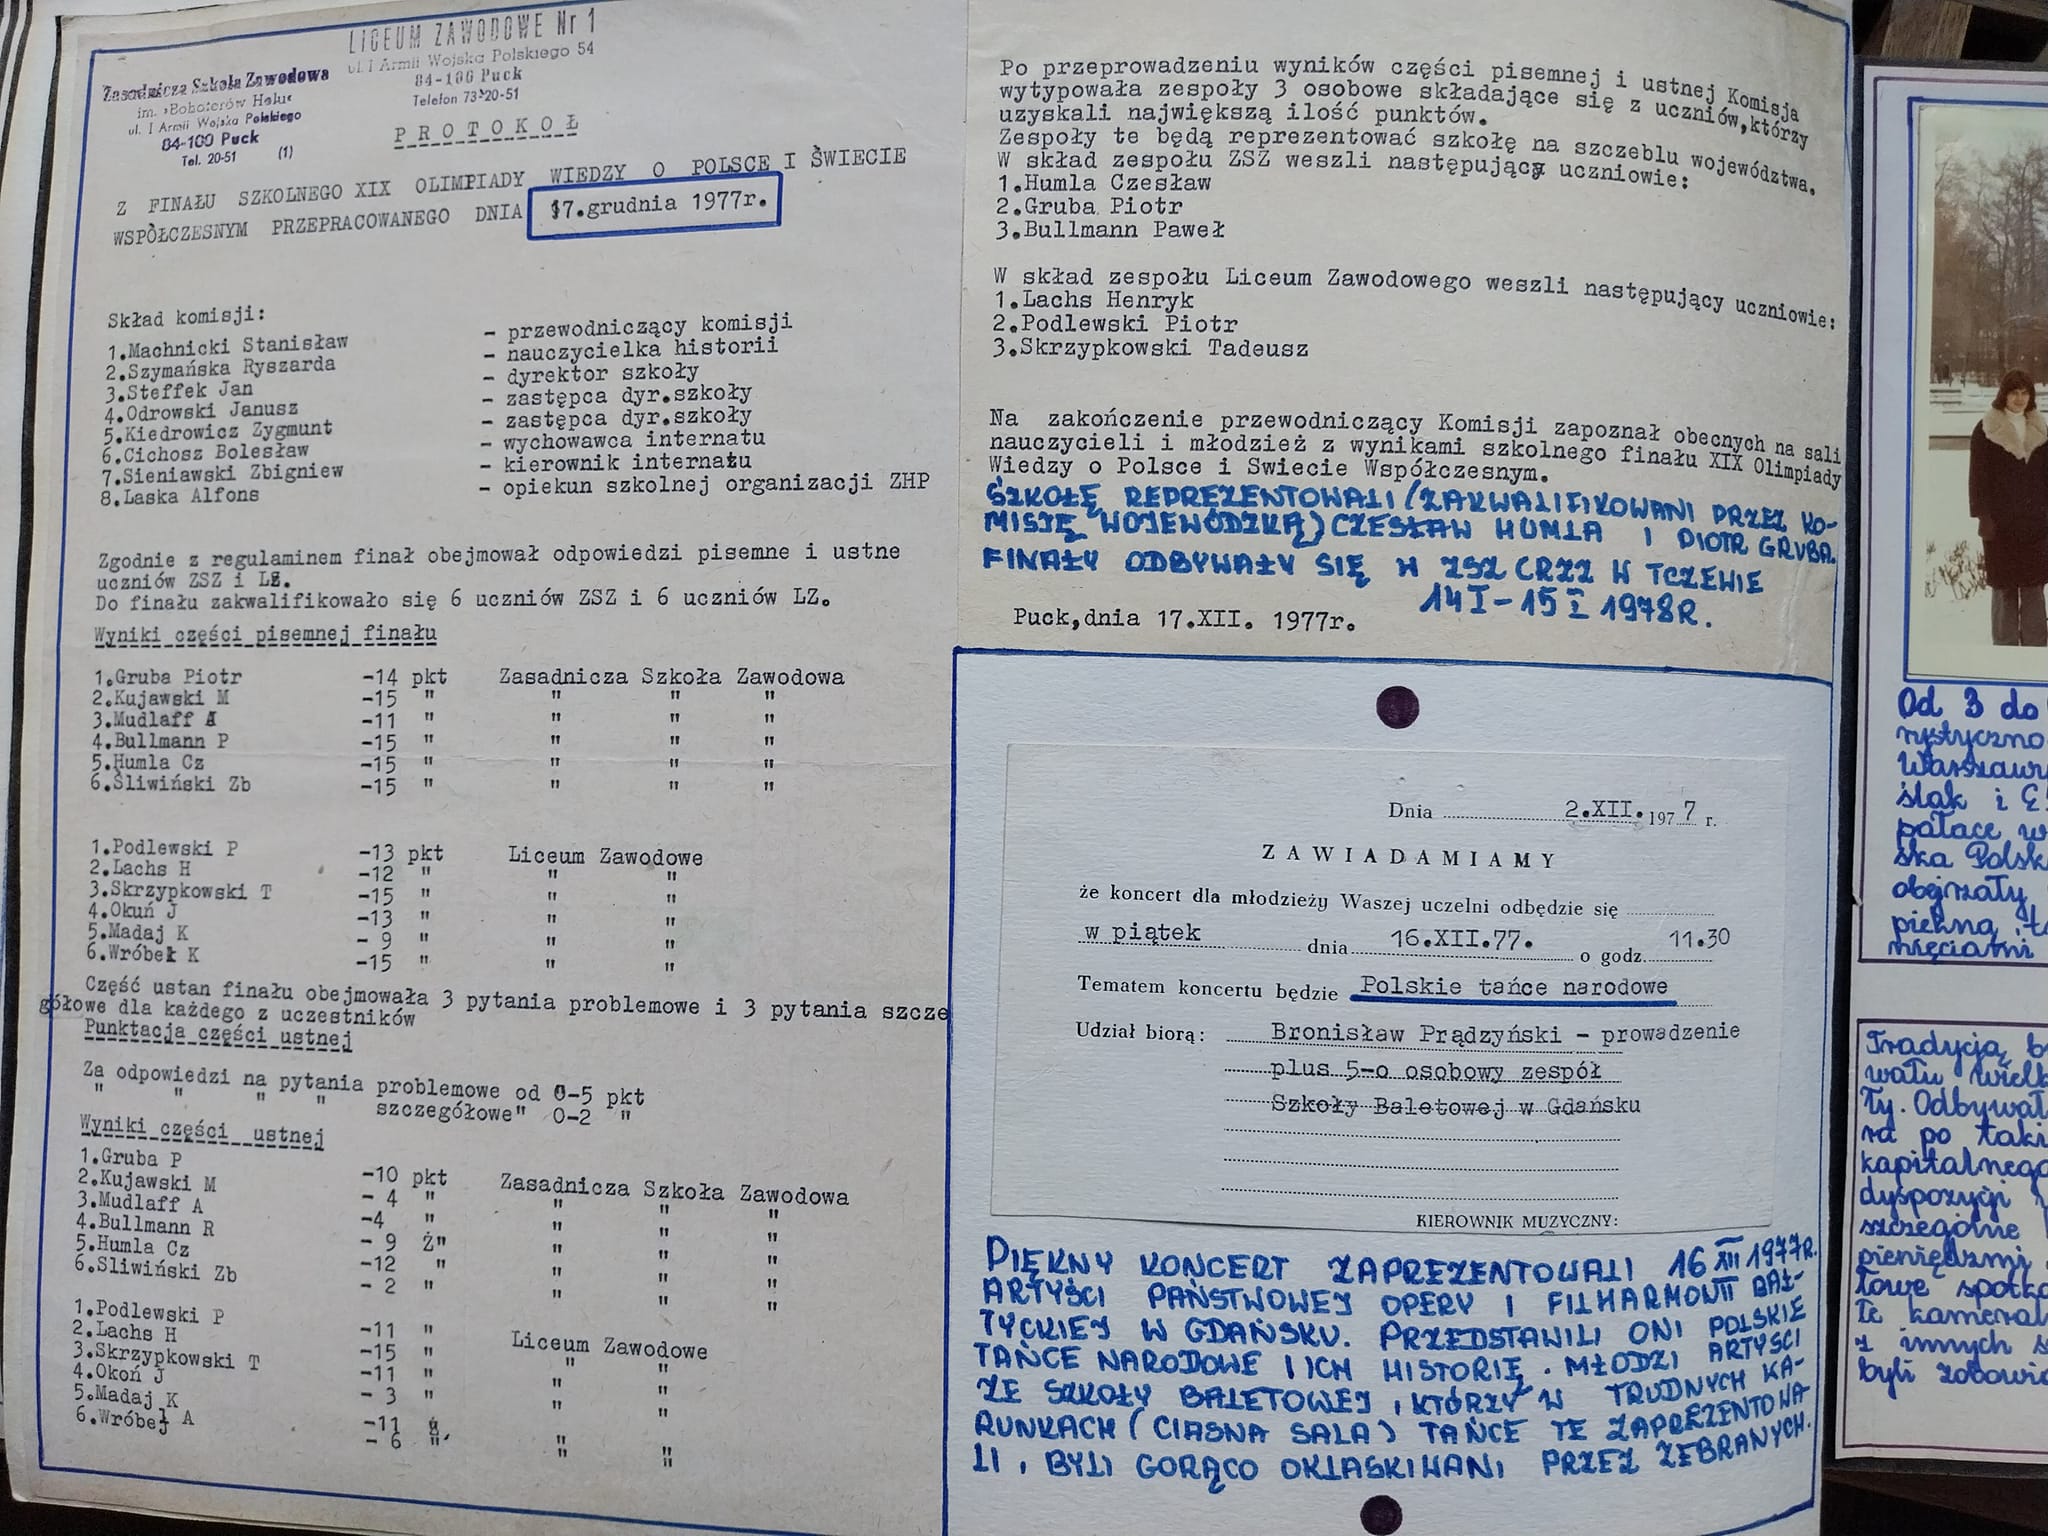 LICEUM ZAWODOWE Nr 1
ul. I Armii Wojska Polskiego 54
84-100 Puck
Telefon 73-20-51
Zasadnicza Szkoła Zawodowa
im. "Bohaterów Helu"
ul. I Armii Wojska Polskiego
84-100 Puck
Tel. 20-51 (1)
PROTOKOŁ
Z FINAŁU SZKOLNEGO XIX OLIMPIADY WIEDZY O POLSCE I ŚWIECIE
WSPÓŁCZESNYM PRZEPRACOWANEGO DNIA 17.grudnia 1977r.
Skład komisji:
1.Machnicki Stanisław - przewodniczący komisji
2.Szymańska Ryszarda - nauczycielka historii
3.Steffek Jan - dyrektor szkoły
4.Odrowski Janusz - zastępca dyr.szkoły
5.Kiedrowicz Zygmunt - zastępca dyr.szkoły
6.Cichosz Bolesław - wychowawca internatu
7.Sieniawski Zbigniew - kierownik internatu
8.Laska Alfons - opiekun szkolnej organizacji ZHP
Zgodnie z regulaminem finał obejmował odpowiedzi pisemne i ustne
uczniów ZSZ i LZ.
Do finału zakwalifikowało się 6 uczniów ZSZ i 6 uczniów LZ.
Wyniki części pisemnej finału
1.Gruba Piotr -14 pkt Zasadnicza Szkoła Zawodowa
2.Kujawski M -15 " " " "
3.Mudlaff A -11 " " " "
4.Bullmann P -15 " " " "
5.Humla Cz -15 " " " "
6.Śliwiński Zb -15 " " " "
1.Podlewski P -13 pkt Liceum Zawodowe
2.Lachs H -12 " " "
3.Skrzypkowski T -15 " " "
4.Okuń J -13 " " "
5.Madaj K - 9 " " "
6.Wróbel K -15 " " "
Część ustan finału obejmowała 3 pytania problemowe i 3 pytania szcze
gółowe dla każdego z uczestników
Punktacja części ustnej
Za odpowiedzi na pytania problemowe od 0-5 pkt
" " " " szczegółowe" 0-2 "
Wyniki części ustnej
1.Gruba P -10 pkt Zasadnicza Szkoła Zawodowa
2.Kujawski M - 4 " " " "
3.Mudlaff A -4 " " " "
4.Bullmann R - 9 Ż" " " "
5.Humla Cz -12 " " " "
6.Sliwiński Zb - 2 " " " "
1.Podlewski P -11 " Liceum Zawodowe
2.Lachs H -15 " " "
3.Skrzypkowski T -11 " " "
4.Okoń J - 3 " " "
5.Madaj K -11 " " "
6.Wróbel A - 6 " " "
Po przeprowadzeniu wyników części pisemnej i ustnej Komisja
wytypowała zespoły 3 osobowe składające się z uczniów,którzy
uzyskali największą ilość punktów.
Zespoły te będą reprezentować szkołę na szczeblu województwa.
W skład zespołu ZSZ weszli następujący uczniowie:
1.Humla Czesław
2.Gruba Piotr
3.Bullmann Paweł
W skład zespołu Liceum Zawodowego weszli następujący uczniowie:
1.Lachs Henryk
2.Podlewski Piotr
3.Skrzypkowski Tadeusz
Na zakończenie przewodniczący Komisji zapoznał obecnych na sali
nauczycieli i młodzież z wynikami szkolnego finału XIX Olimpiady
Wiedzy o Polsce i Swiecie Współczesnym.
SZKOŁĘ REPREZENTOWALI (ZAKWALIFIKOWANI PRZEZ KO-
MISJĘ WOJEWÓDZKĄ) CZESŁAW HUMLA I PIOTR GRUBA.
FINAŁY ODBYWAŁY SIĘ W ZSZ CRZZ W TCZEWIE
14 I - 15 I 1978R.
Puck,dnia 17.XII. 1977r.
Dnia 2.XII.1977 r.
ZAWIADAMIAMY
że koncert dla młodzieży Waszej uczelni odbędzie się
w piątek dnia 16.XII.77. o godz. 11.30
Tematem koncertu będzie Polskie tańce narodowe
Udział biorą: Bronisław Prądzyński - prowadzenie
plus 5-o osobowy zespół
Szkoły Baletowej w Gdańsku
KIEROWNIK MUZYCZNY:
PIĘKNY KONCERT ZAPREZENTOWALI 16 XII 1977R.
ARTYŚCI PAŃSTWOWEJ OPERY I FILHARMONII BAŁ-
TYCKIEJ W GDAŃSKU. PRZEDSTAWILI ONI POLSKIE
TAŃCE NARODOWE I ICH HISTORIĘ. MŁODZI ARTYŚCI
ZE SZKOŁY BALETOWEJ, KTÓRZY W TRUDNYCH WA-
RUNKACH (CIASNA SALA) TAŃCE TE ZAPREZENTOWA-
LI, BYLI GORĄCO OKLASKIWANI PRZEZ ZEBRANYCH.
Od 3 do
rystyczno
Warszawy
ślak i
pałace w
ska Polsk
obejrzały
piękną
mięciami
Tradycją b
wału wielk
ty. Odbywał
ra po taki
kapitalnego
dyspozycji
szczególne
pieniędzmi
łowe spotka
te kameral
z innych s
byli zobowią